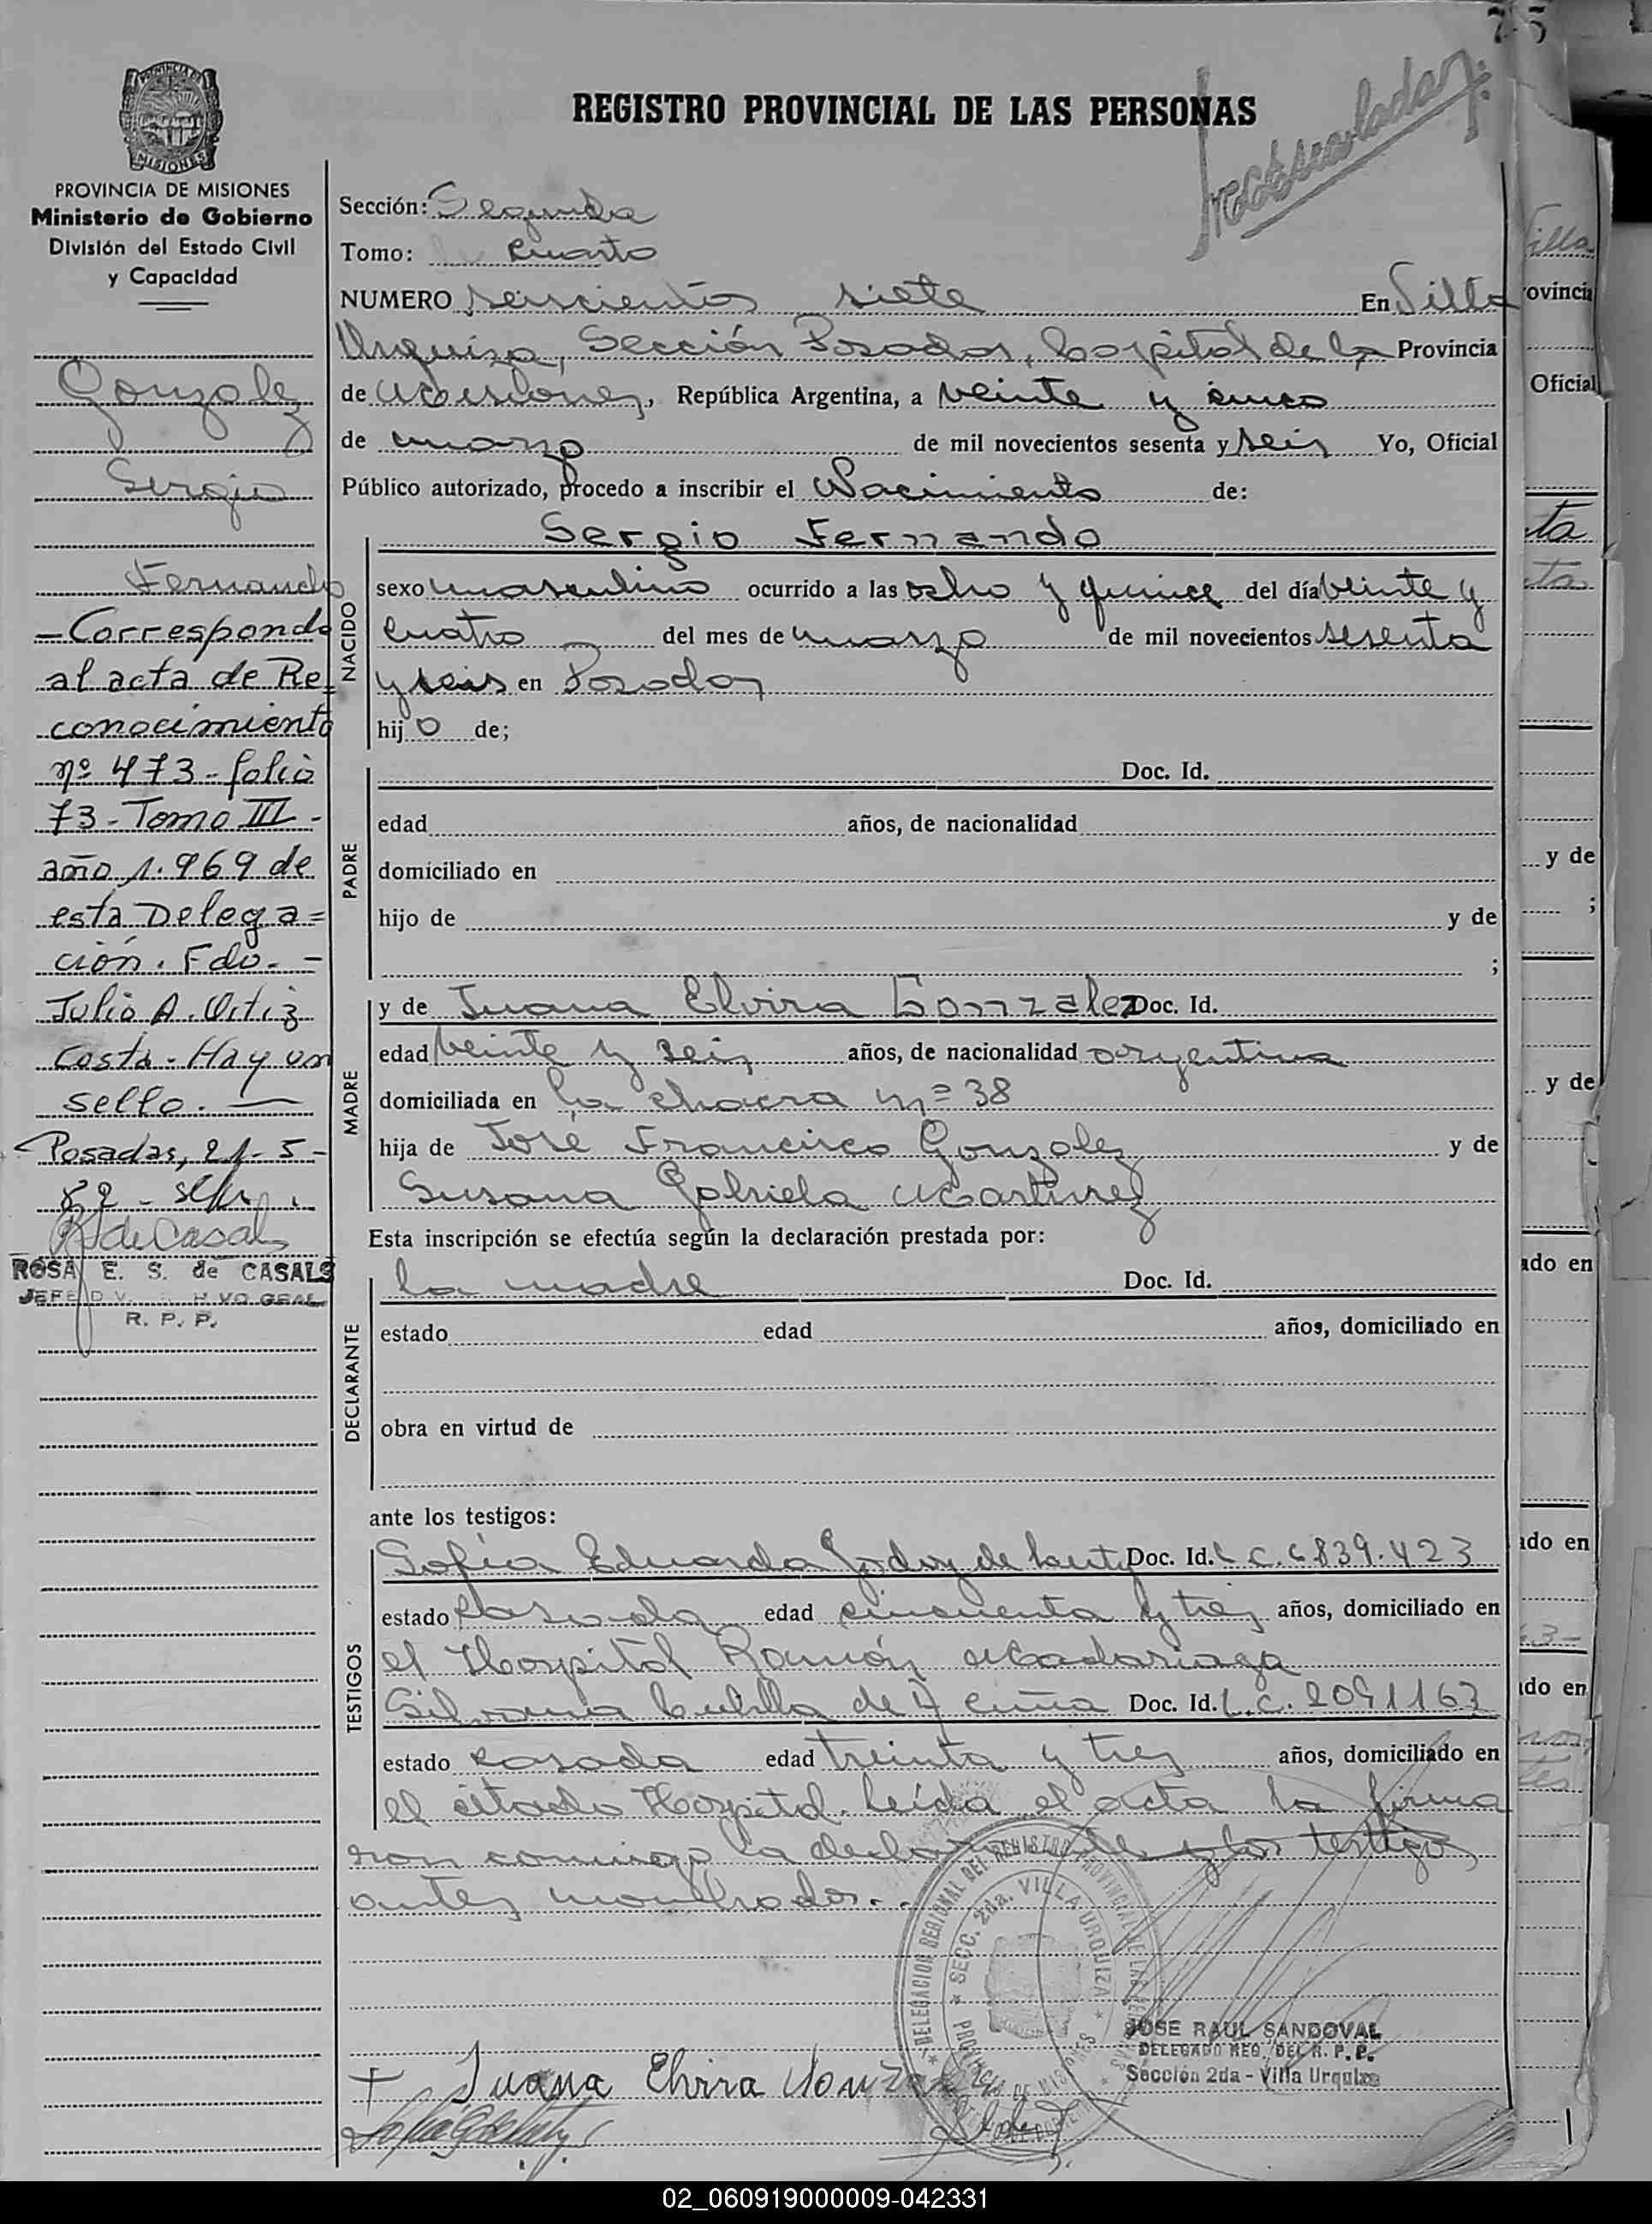 75
PROVINCIA DE
MISIONES
REGISTRO PROVINCIAL DE LAS PERSONAS
PROVINCIA DE MISIONES
Ministerio de Gobierno
División del Estado Civil
y Capacidad
Gonzalez
Sergio
Fernando
- Corresponde
al acta de Re_
conocimiento
nº 473 - folio
73 - Tomo III -
año 1.969 de
esta Delega=
ción. Fdo. -
Julio A. Ortiz
Costa - Hay un
sello. —
Posadas, 21-5-
82 -
R S de Casals
ROSA E. S. de CASALS
R. P. P.
Sección: Segunda
Tomo: Cuarto
NUMERO seiscientos siete En Villa
Urquiza, Sección Posadas, Capital de la Provincia
de Misiones, República Argentina, a veinte y cinco
de marzo de mil novecientos sesenta y seis Yo, Oficial
Público autorizado, procedo a inscribir el Nacimiento de:
Sergio Fernando
NACIDO
sexo masculino ocurrido a las ocho y quince del día veinte y
cuatro del mes de marzo de mil novecientos sesenta
y seis en Posadas
hij o de;
PADRE
Doc. Id.
edad años, de nacionalidad
domiciliado en
hijo de y de
;
MADRE
y de Juana Elvira Gonzalez Doc. Id.
edad veinte y seis años, de nacionalidad argentina
domiciliada en la chacra nº 38
hija de José Francisco Gonzalez y de
Susana Gabriela Martinez
Esta inscripción se efectúa según la declaración prestada por:
DECLARANTE
la madre Doc. Id.
estado edad años, domiciliado en
obra en virtud de
ante los testigos:
TESTIGOS
Sofía Eduarda Godoy de Doc. Id. L C. 6839.423
estado casada edad cincuenta y tres años, domiciliado en
el Hospital Ramón Madariaga
Silvana de Acuña Doc. Id. L.C. 2091163
estado casada edad treinta y tres años, domiciliado en
el citado Hospital. Leída el acta la firma
ron conmigo la declarante y los testigos
antes nombrados.
DELEGACION REGIONAL DEL REGISTRO PROVINCIAL DE LAS PERSONAS
SECC. 2da. VILLA URQUIZA
PROVINCIA DE MISIONES
JOSE RAUL SANDOVAL
DELEGADO REG. DEL R. P. P.
Sección 2da - Villa Urquiza
Juana Elvira Gonzalez
Villa
ovincia
Oficial
ta
y de
;
y de
ado en
ado en
do en
02_060919000009-042331